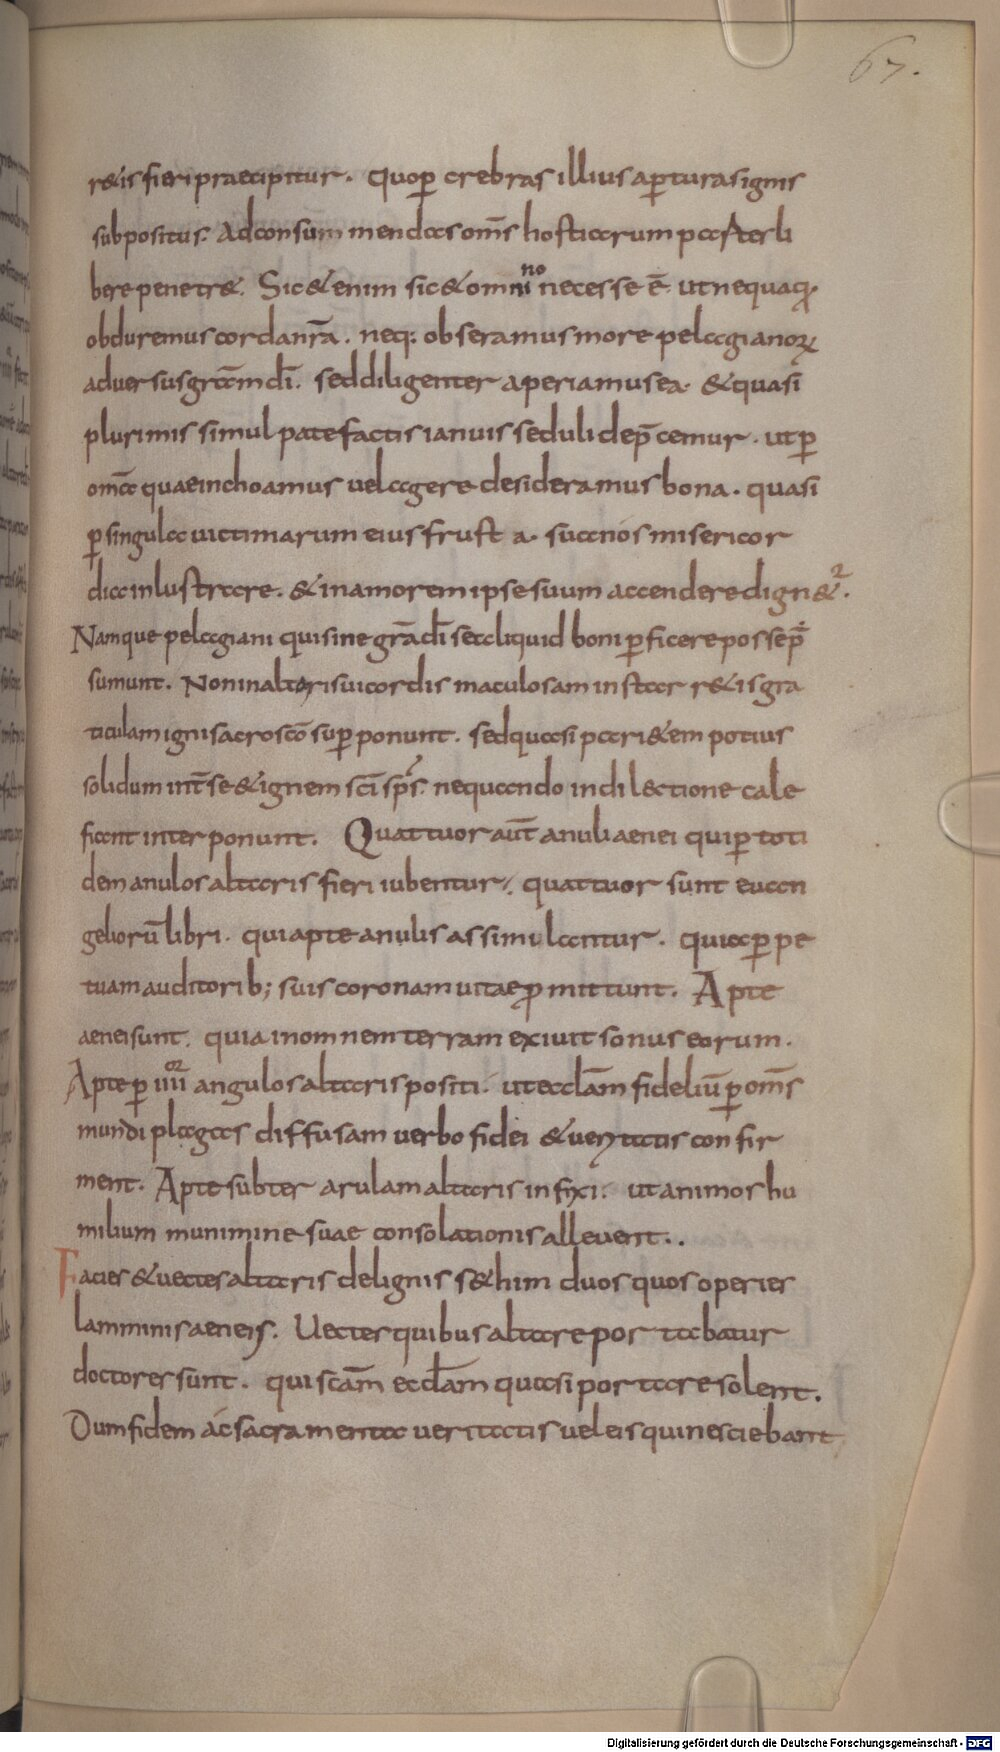 67.
r&is fieri praecipitur. quo ꝑ crebras illius aꝑturas ignis
subpositus. Ad consummendas om̄s hostiarum partes li
bere penetr&. Sic & enim sic & omnino necesse ē. ut nequaq̄
obduremus corda nr̄a. neq: obseramus more pelagianoꝝ
aduersus gr̄am dī. sed diligenter aperiamus ea. & quasi
plurimis simul patefactis ianuis seduli dep̄cemur. ut ꝑ
om̄a quae inchoamus uel agere desideramus bona. quasi
ꝑ singula uictimarum eius frusta. sua nos misericor
dia inlustrare. & in amorem ipse suum accendere dign&ur.
Namque pelagiani qui sine gr̄a dī se aliquid boni ꝑficere posse p̄
sumunt. Non in altari sui cordis maculosam instar r&is gra
ticulam igni sacroscō suꝑponunt. sed quasi pari&em potius
solidum int̄ se & ignem scī sp̄s. nequando in dilectione cale
fiant interponunt. Quattuor aut̄ anuli aenei qui ꝑ toti
dem anulos altaris fieri iubentur. quattuor sunt euan
geliorū libri. qui apte anulis assimulantur. quia ꝑpe
tuam auditorib; suis coronam uitae ꝓmittunt. Apte
aenei sunt. quia in omnem terram exiuit sonus eorum.
Apte ꝑ iiii or angulos altaris positi. ut eccl̄am fideliū ꝑ om̄s
mundi plagas diffusam uerbo fidei & ueritatis confir
ment. Apte subter arulam altaris infixi. ut animos hu
milium munimine suae consolationis alleuent..
Facies & uectes altaris de lignis s&him duos quos operies
lamminis aeneis. Uectes quibus altare portabatur
doctores sunt. qui scām eccl̄am quasi portare solent.
Dum fidem ac sacramenta ueritatis uel eis qui nesciebant
Digitalisierung gefördert durch die Deutsche Forschungsgemeinschaft - DFG